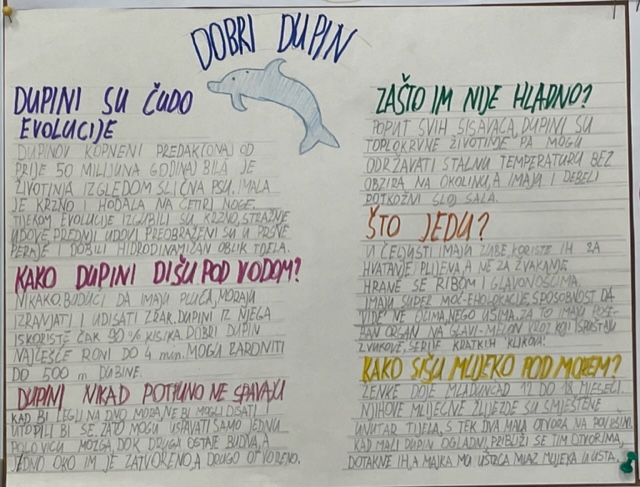 DOBRI DUPIN
DUPINI SU ČUDO
EVOLUCIJE
DUPINOV KOPNENI PREDAK(ONAJ OD
PRIJE 50 MILIJUNA GODINA) BILA JE
ŽIVOTINJA IZGLEDOM SLIČNA PSU. IMALA
JE KRZNO I HODALA NA ČETIRI NOGE.
TIJEKOM EVOLUCIJE IZGUBILI SU KRZNO, STRAŽNJE
UDOVE, PREDNJI UDOVI PREOBRAZENI SU U PRSNE
PERAJE I DOBILI HIDRODINAMIČAN OBLIK TIJELA.
KAKO DUPINI DIŠU POD VODOM?
NIKAKO, BUDUĆI DA IMAJU PLUĆA, MORAJU
IZRANJATI I UDISATI ZRAK. DUPINI IZ NJEGA
ISKORISTE ČAK 90% KISIKA. DOBRI DUPIN
NAJČEŠĆE RONI DO 4 min. MOGU ZARONITI
DO 500 m DUBINE.
DUPINI NIKAD POTPUNO NE SPAVAJU
KAD BI LEGLI NA DNO MORA, NE BI MOGLI DISATI
UTOPILI BI SE. ZATO MOGU USPAVATI SAMO JEDNU
POLOVICU MOZGA, DOK DRUGA OSTAJE BUDNA, A
JEDNO OKO IM JE ZATVORENO, A DRUGO OTVORENO.
ZAŠTO IM NIJE HLADNO?
POPUT SVIH SISAVACA, DUPINI SU
TOPLOKRVNE ŽIVOTINJE PA MOGU
ODRŽAVATI STALNU TEMPERATURU BEZ
OBZIRA NA OKOLINU, A IMAJU I DEBELI
POTKOŽNI SLOJ SALA.
ŠTO JEDU?
U ČELJUSTI IMAJU ZUBE, KORISTE IH ZA
HVATANJE PLIJENA, A NE ZA ŽVAKANJE.
HRANE SE RIBOM I GLAVONOŠCIMA.
IMAJU SUPER MOĆ-EHOLOKACIJE, SPOSOBNOST DA
VIDE NE OČIMA, NEGO UŠIMA. ZA TO IMAJU POSE-
BAN ORGAN NA GLAVI-MELON KROZ KOJI ISPUŠTAJU
ZVUKOVE, SERIJE KRATKIH KLIKOVA.
KAKO SIŠU MLIJEKO POD MOREM?
ŽENKE DOJE MLADUNČAD 12 DO 18 MJESECI.
NJIHOVE MLIJEČNE ŽLIJEZDE SU SMJEŠTENE
UNUTAR TIJELA, S TEK DVA MALA OTVORA NA POVRŠINI.
KAD MALI DUPIN OGLADNI, PRIBLIŽI SE TIM OTVORIMA,
DOTAKNE IH, A MAJKA MU UŠTRCA MLAZ MLIJEKA U USTA.